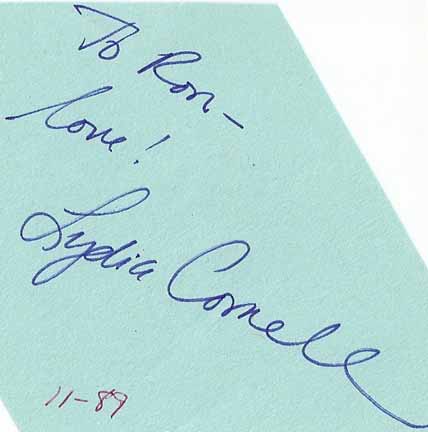 To Ron-
love!
Lydia Cornell
11-89